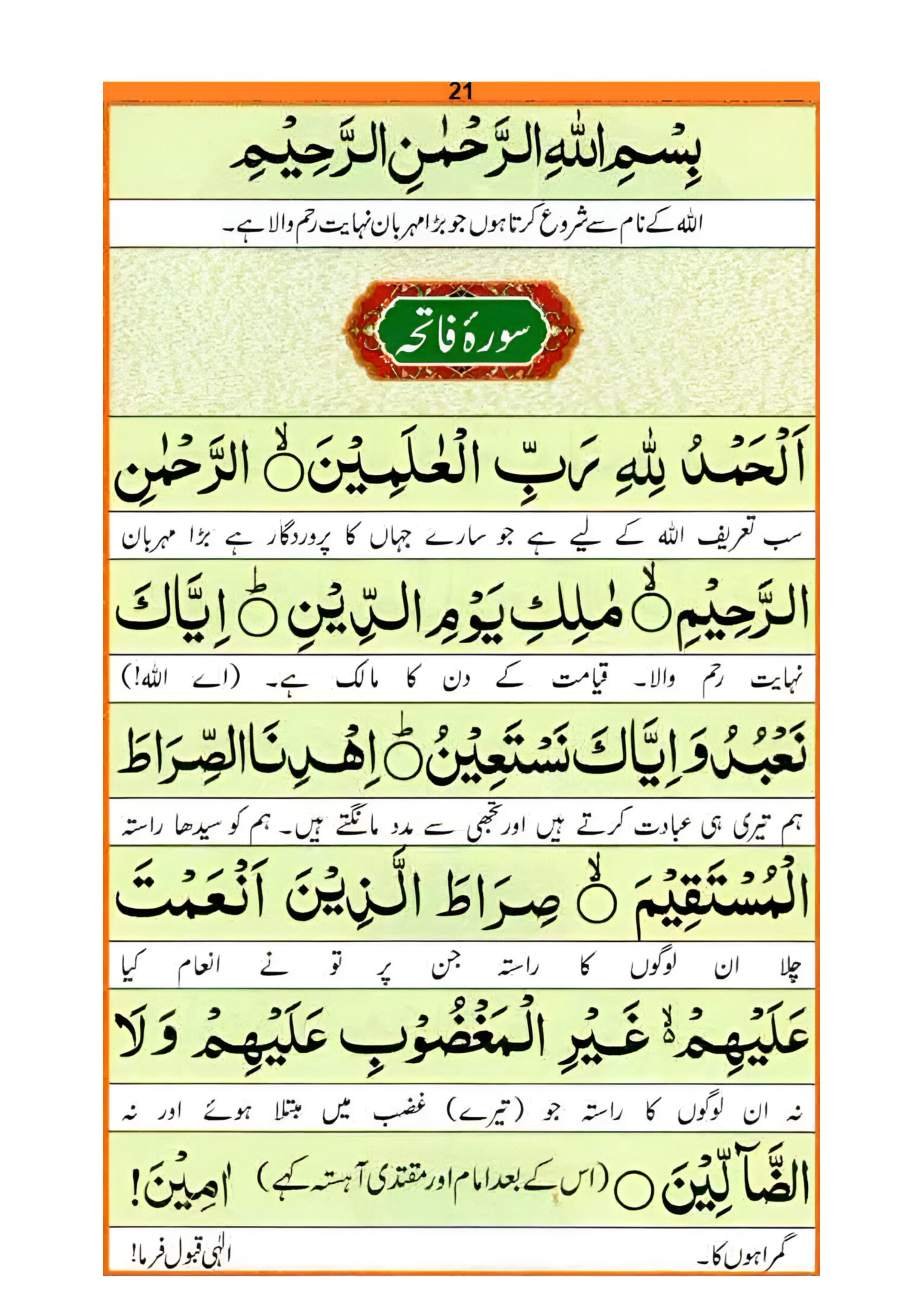 21
بِسْمِ اللهِ الرَّحْمٰنِ الرَّحِيْمِ
اللہ کے نام سے شروع کرتا ہوں جو بڑا مہربان نہایت رحم والا ہے۔
سورۂ فاتحہ
اَلْحَمْدُ لِلّٰهِ رَبِّ الْعٰلَمِيْنَ ۙ○ الرَّحْمٰنِ
سب تعریف اللہ کے لیے ہے جو سارے جہاں کا پروردگار ہے بڑا مہربان
الرَّحِيْمِ ۙ○ مٰلِكِ يَوْمِ الدِّيْنِ ؕ○ اِيَّاكَ
نہایت رحم والا۔ قیامت کے دن کا مالک ہے۔ (اے اللہ!)
نَعْبُدُ وَاِيَّاكَ نَسْتَعِيْنُ ؕ○ اِهْدِنَا الصِّرَاطَ
ہم تیری ہی عبادت کرتے ہیں اور تجھی سے مدد مانگتے ہیں۔ ہم کو سیدھا راستہ
الْمُسْتَقِيْمَ ۙ○ صِرَاطَ الَّذِيْنَ اَنْعَمْتَ
چلا ان لوگوں کا راستہ جن پر تو نے انعام کیا
عَلَيْهِمْ ۙ۬ غَيْرِ الْمَغْضُوْبِ عَلَيْهِمْ وَلَا
نہ ان لوگوں کا راستہ جو (تیرے) غضب میں مبتلا ہوئے اور نہ
الضَّآلِّيْنَ ○ (اس کے بعد امام اور مقتدی آہستہ کہے) اٰمِيْنَ!
گمراہوں کا۔ الٰہی قبول فرما!